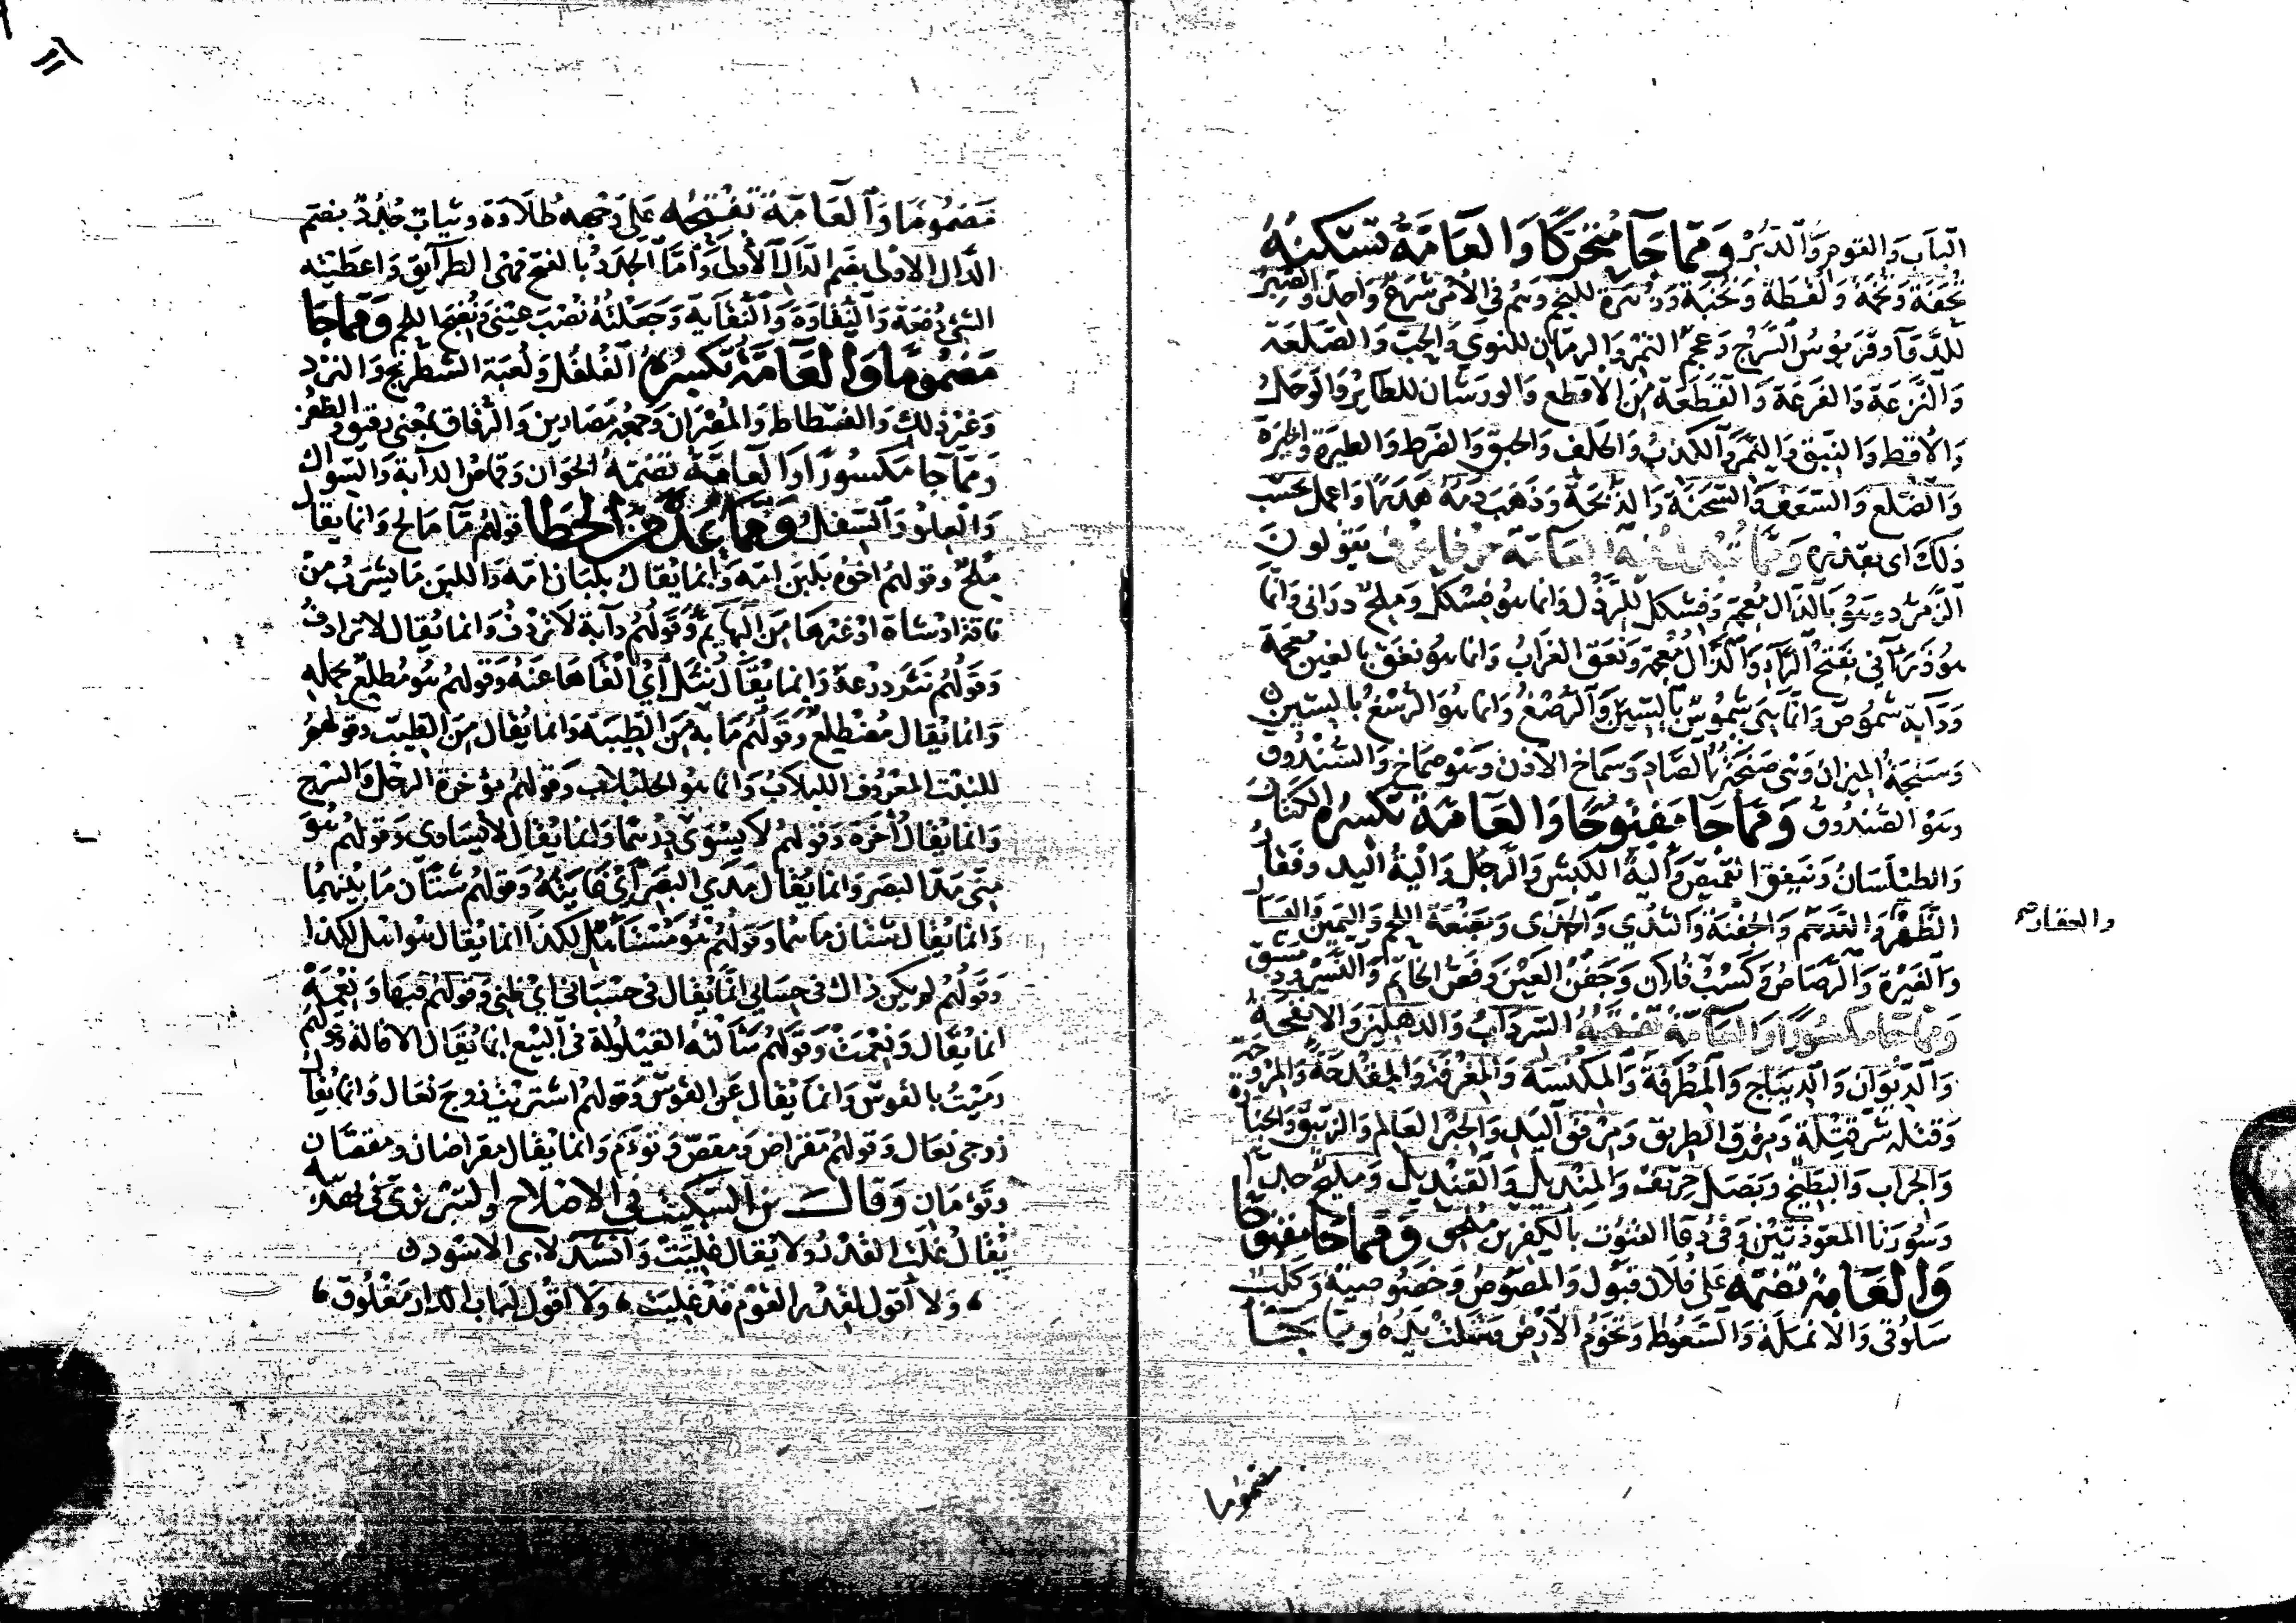 الباب والقوم والدبر ومما جاء متحركا والعامة تسكنه
تحفة وتخمة ولقطة ونخبة وزهرة للنجم وهم في الأمر شرع واحد والصبر
للدواء وقربوس السرج وعجم التمر والرمان للنوى والحب والصلعة
والنزعة والفرعة والقطعة من الأقطع والورشان للطائر والوحل
والأقط والنبق والنمر والكذب والحلف والحبق والضرط والطيرة والخيرة
والضلع والسعف والسحنة والذبحة وذهب دمه هدرا واعمل بحسب
ذلك أي بقدره ومما تبدل فيه العامة حرفا بحرف يقولون
الزمرد وهو بالذال معجمة وفسكل للرذل وانما هو فشكل وملح دراني وانما
هو ذرآني بفتح الراء والذال معجمة ونعق الغراب وانما هو نغق بالغين معجمة
ودابة شموص وانما هي شموس بالسين والرصغ وانما هو الرسغ بالسين
وسنجة الميزان وهي صنجة بالصاد وسماخ الأذن وهو صماخ والسندوق
وهو الصندوق ومما جا مفتوحا والعامة تكسره الكتان
والطيلسان ونيفق القميص وألية الكبش والرجل وألية اليد وفقار
الظهر والعدهم والجفنة والثدي والجدي وبضعة اللحم واليمين واليسار
والغيرة والرصاص وكسب فلان وجفن العين وفص الخاتم والنسر ودمشق
ومما جا مكسورا والعامة تفتحه السرداب والدهليز والانفحة
والديوان والديباج والمطرقة والمكنسة والمغرفة والمقدحة والمروحة
وقتله شر قتلة ومرفق الطريق ومرفق اليد والحبر العالم والزيبق والجنازة
والجراب والبطيخ وبصل حريف والمنديل والقنديل ومليح جدا
وسورتا المعوذتين وفي دعا القنوت بالكفرين ملحق ومما جا مفتوحا
والعامة تضمه على فلان قبول والمصوص وخصوصية وكلب
سلوقي والأنملة والسعوط وتخوم الأرض وشلت يده ومما جا
والعقاد
مضموما
مضموما والعامة تفتحه على وجهه طلاوة وثياب جدد بضم
الدال الاولى بضم الدال الأولى وأما الجدد بالفتح فهي الطرائق واعطيته
الشيء دفعة والنقاوة والنقاية وجعلته نصب عيني ونضج اللحم ومما جا
مضموما والعامة تكسره الفلفل ولعبة الشطرنج والنرد
وغير ذلك والفسطاط والمصران وجمعه مصارين والرقاق بمعنى رقيق والظفر
ومما جا مكسورا والعامة تضمه الخوان وقماص الدابة والسواك
والعلو والسفل ومما عد من الخطا قولهم ما مالح وانما يقال
ملح وقولهم اخوه بلبن امه وانما يقال بلبان امه واللبن ما يشرب من
ناقة او شاة او غيرها من البهائم وقولهم دابة لا تردف وانما يقال لا ترادف
وقولهم نثر درعه وانما يقال نثل أي القاها عنه وقولهم هو مطلع بحمله
وانما يقال مضطلع وقولهم ما به من الطيبة وانما يقال من الطيب وقولهم
للنبت المعروف اللبلاب وانما هو الحلبلاب وقولهم مؤخرة الرحل والسرج
وانما يقال أخرة وقولهم لا يسوى درهما وانما يقال لا يساوى وقولهم هو
مني مد البصر وانما يقال مدى البصر أي غايته وقولهم شتان ما بينهما
وانما يقال شتان ما هما وقولهم هو مستاهل لكذا انما يقال هو اهل لكذا
وقولهم لم يكن ذاك في حسابي انما يقال في حسباني اي ظني وقولهم فبها ونعمه
انما يقال ونعمت وقولهم سألته القيلولة في البيع انما يقال الاقالة وقولهم
رميت بالقوس وانما يقال عن القوس وقولهم اشتريت زوج نعال وانما يقال
زوجي نعال وقولهم مقراض ومقص وتوأم وانما يقال مقراضان ومقصان
وتوءمان وقال بن السكيت في الاصلاح والتبريزي في تهذيبه
يقال غلت القدر ولا يقال غليت وانشد لابي الاسود
ولا أقول لقدر القوم قد غليت ولا أقول لباب الدار مغلوق